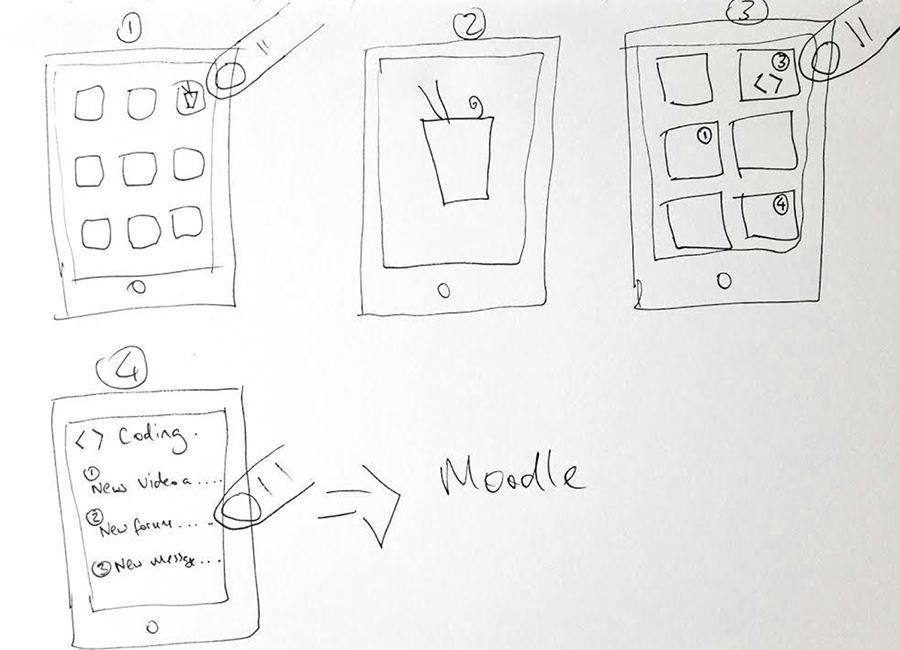 1
2
3
3
< >
1
4
4
< > Coding.
1
New Video a....
2
New forum...
3 New message...
Moodle